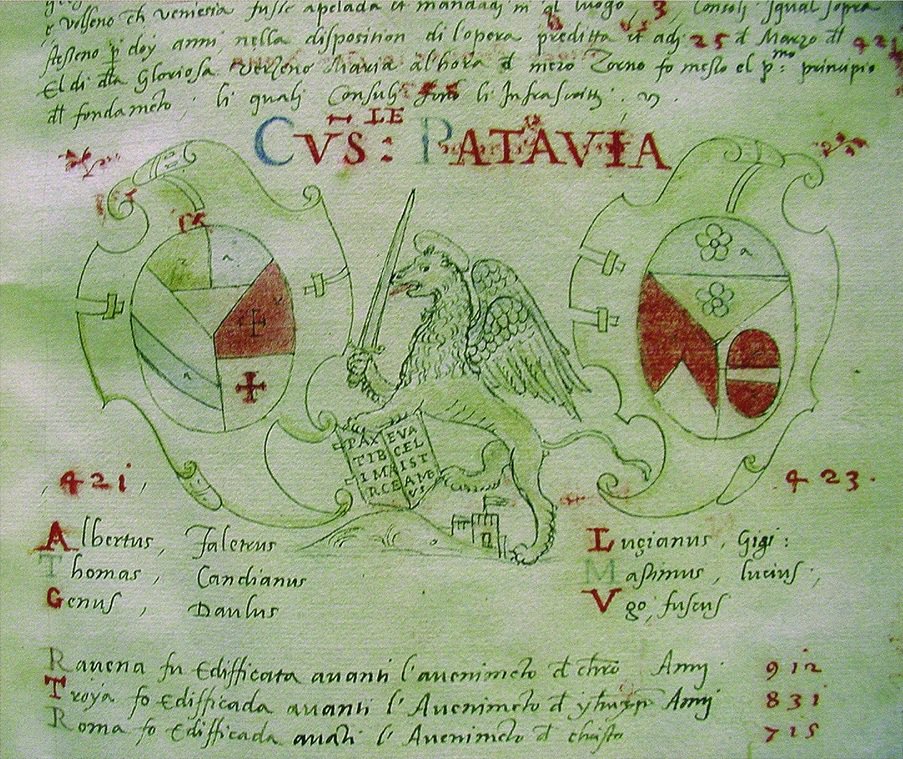 e volseno ch veniesia fusse apelada et mandadj in ql luogo 3, Consoli, iqual sopra
stesseno p doy anni nella disposition di l'opera preditta et adj 25 d Marzo dl 421
El di dla Gloriosa Verzene Maria al'hora d mezo Zorno fo messo el p.mo principio
dl fondameto, li qualj Consulj li Infrascritti
CVS: LE PATAVIA
PAX TIBI MARCE
EVANGELISTA MEVS
421
423.
Albertus, Faletrus
Thomas, Candianus
Genus, Daulus
Lugianus, Gigi:
Massimus, lucius,
Vgo, fuscus
Rauena fu Edifficata auanti l'auenimeto d chro Annj. 912
Troya fo Edifficada auanti l'Auenimeto d Annj 831
Roma fo Edifficada auati l'Auenimeto d christo 715